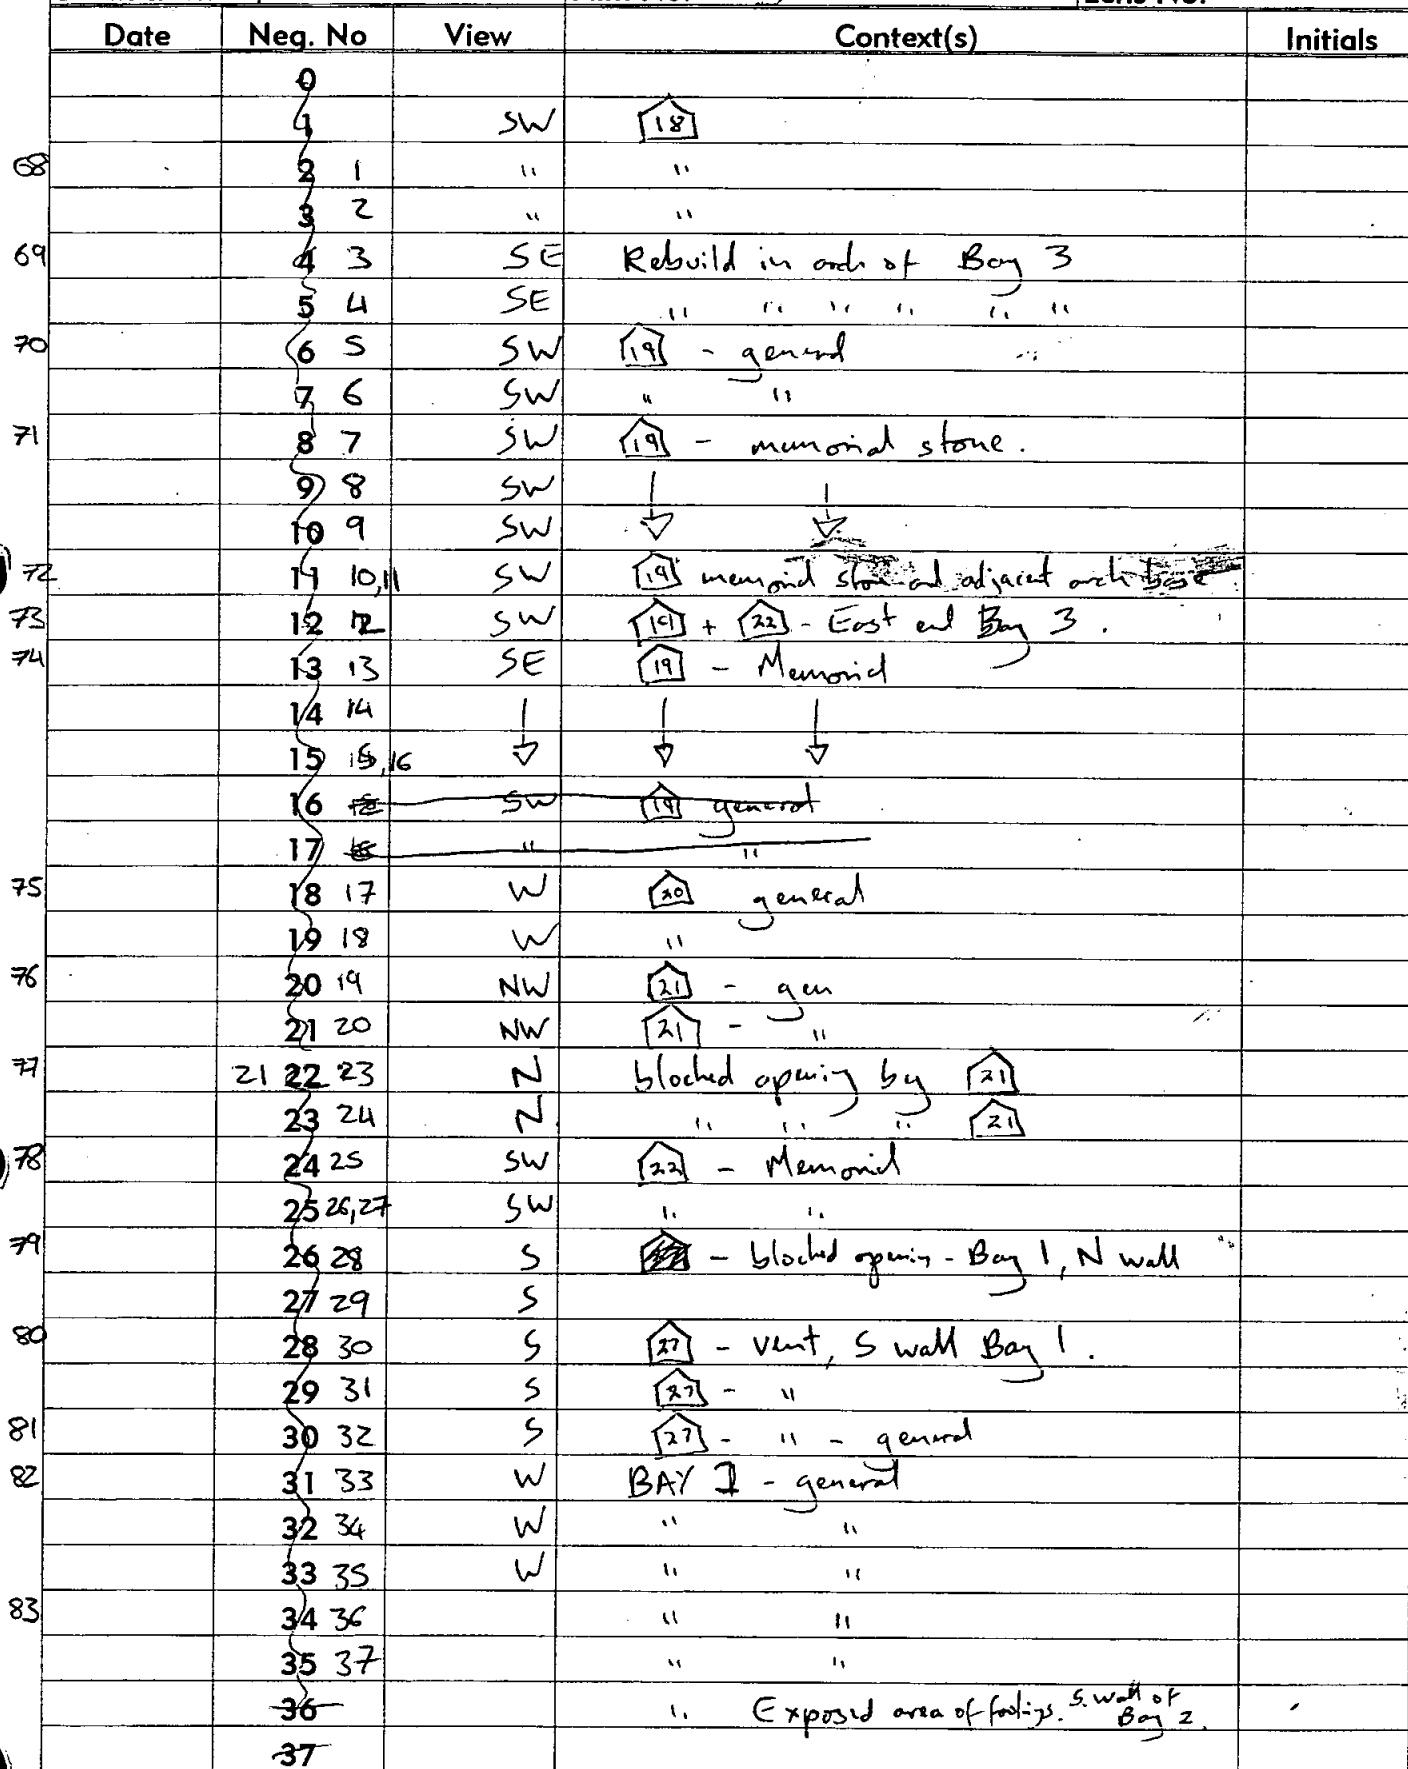 Date Neg. No View Context(s) Initials
0
1 SW 18
68 2 1 " "
3 2 " "
69 4 3 SE Rebuild in arch of Bay 3
5 4 SE " " " " " "
70 6 5 SW 19 - general
7 6 SW " "
71 8 7 SW 19 - memorial stone.
9 8 SW ↓ ↓
10 9 SW
72 11 10,11 SW 19 memorial stone and adjacent arch base
73 12 12 SW 19 + 22 - East end Bay 3.
74 13 13 SE 19 - Memorial
14 14 ↓ ↓ ↓
15 15,16
16 SW 19 general
17 " "
75 18 17 W 20 general
19 18 W "
76 20 19 NW 21 - gen
21 20 NW 21 - "
77 21 22 23 N blocked opening by 21
23 24 N " " " 21
78 24 25 SW 22 - Memorial
25 26,27 SW " "
79 26 28 S - blocked opening - Bay 1, N wall
27 29 S
80 28 30 S 27 - vent, S wall Bay 1.
29 31 S 27 - "
81 30 32 S 27 - " - general
82 31 33 W BAY 1 - general
32 34 W " "
33 35 W " "
83 34 36 " "
35 37 " "
36 " Exposed area of footings. S. wall of Bay 2.
37